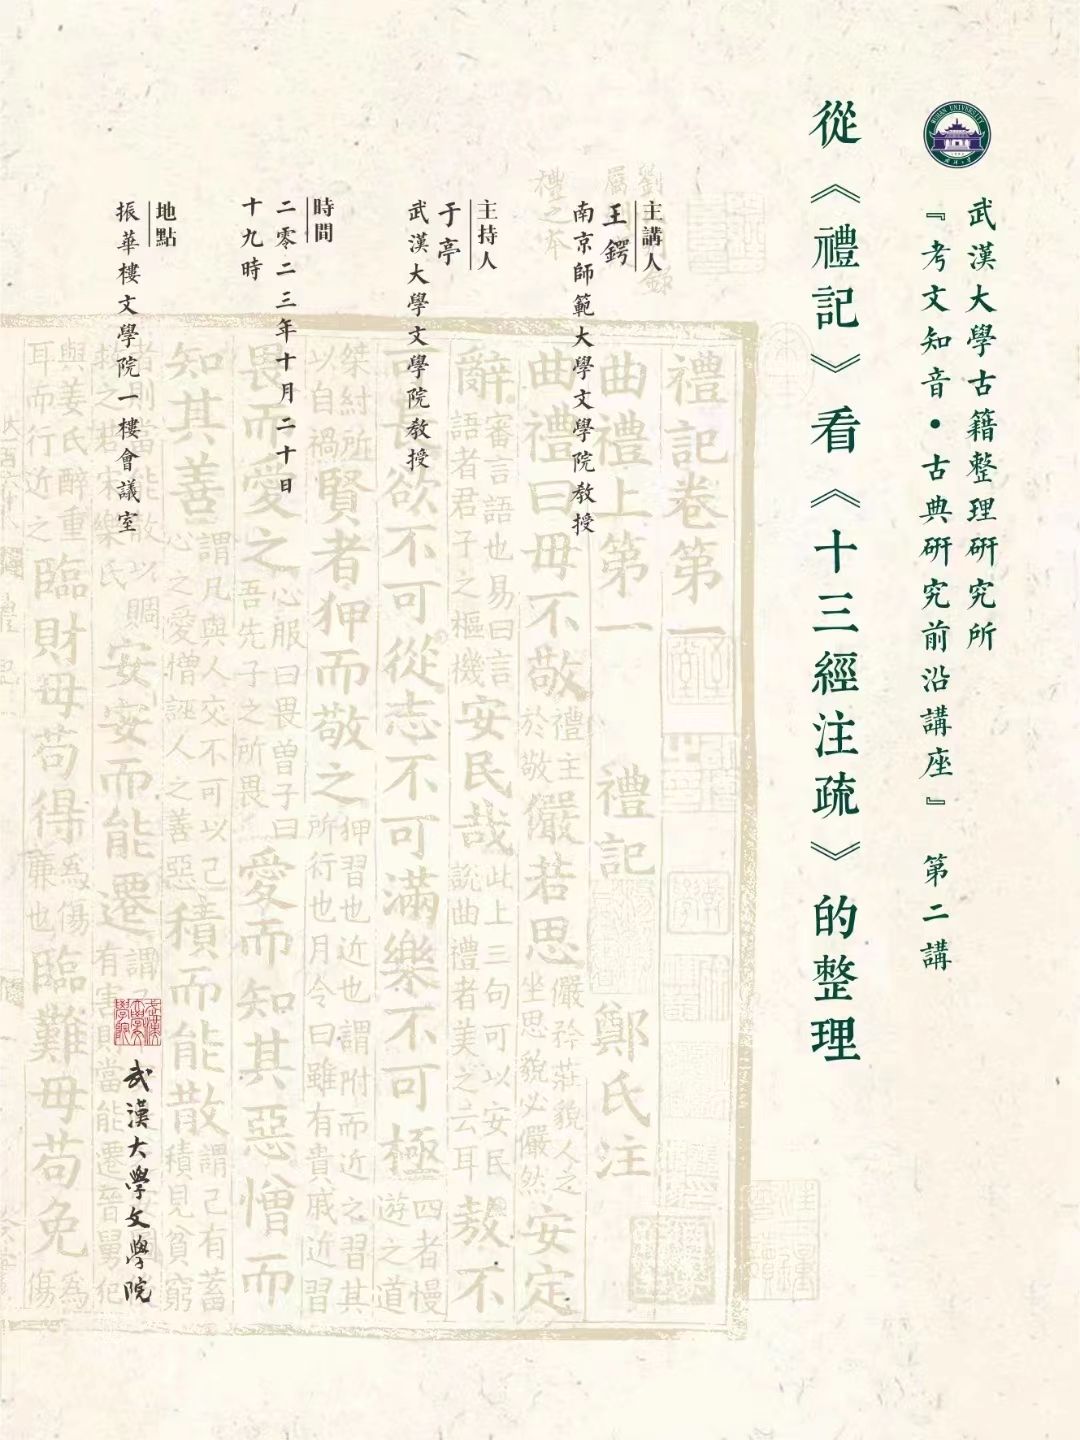 武漢大學古籍整理研究所
『考文知音•古典研究前沿講座』 第二講
從《禮記》看《十三經注疏》的整理
主講人
王鍔
南京師範大學文學院教授
主持人
于亭
武漢大學文學院教授
時間
二零二三年十月二十日
十九時
地點
振華樓文學院一樓會議室
武漢大學文學院
WUHAN UNIVERSITY
禮記卷第一
曲禮上第一 禮記 鄭氏注
曲禮曰毋不敬禮主於敬儼若思儼矜莊貌人之坐思貌必儼然安定
辭審言語也易曰言語者君子之樞機安民哉此上三句可以安民說曲禮者美之云耳敖不
可長欲不可從志不可滿樂不可極四者慢遊之道
桀紂所以自禍賢者狎而敬之狎習也近也謂附而近之習其所行也月令曰雖有貴戚近習
畏而愛之心服曰畏曾子曰吾先子之所畏愛而知其惡憎而
知其善謂凡與人交不可以己心之愛憎誣人之善惡積而能散謂己有蓄積見貧窮
安安而能遷
臨財毋苟得為傷廉也臨難毋苟免為傷